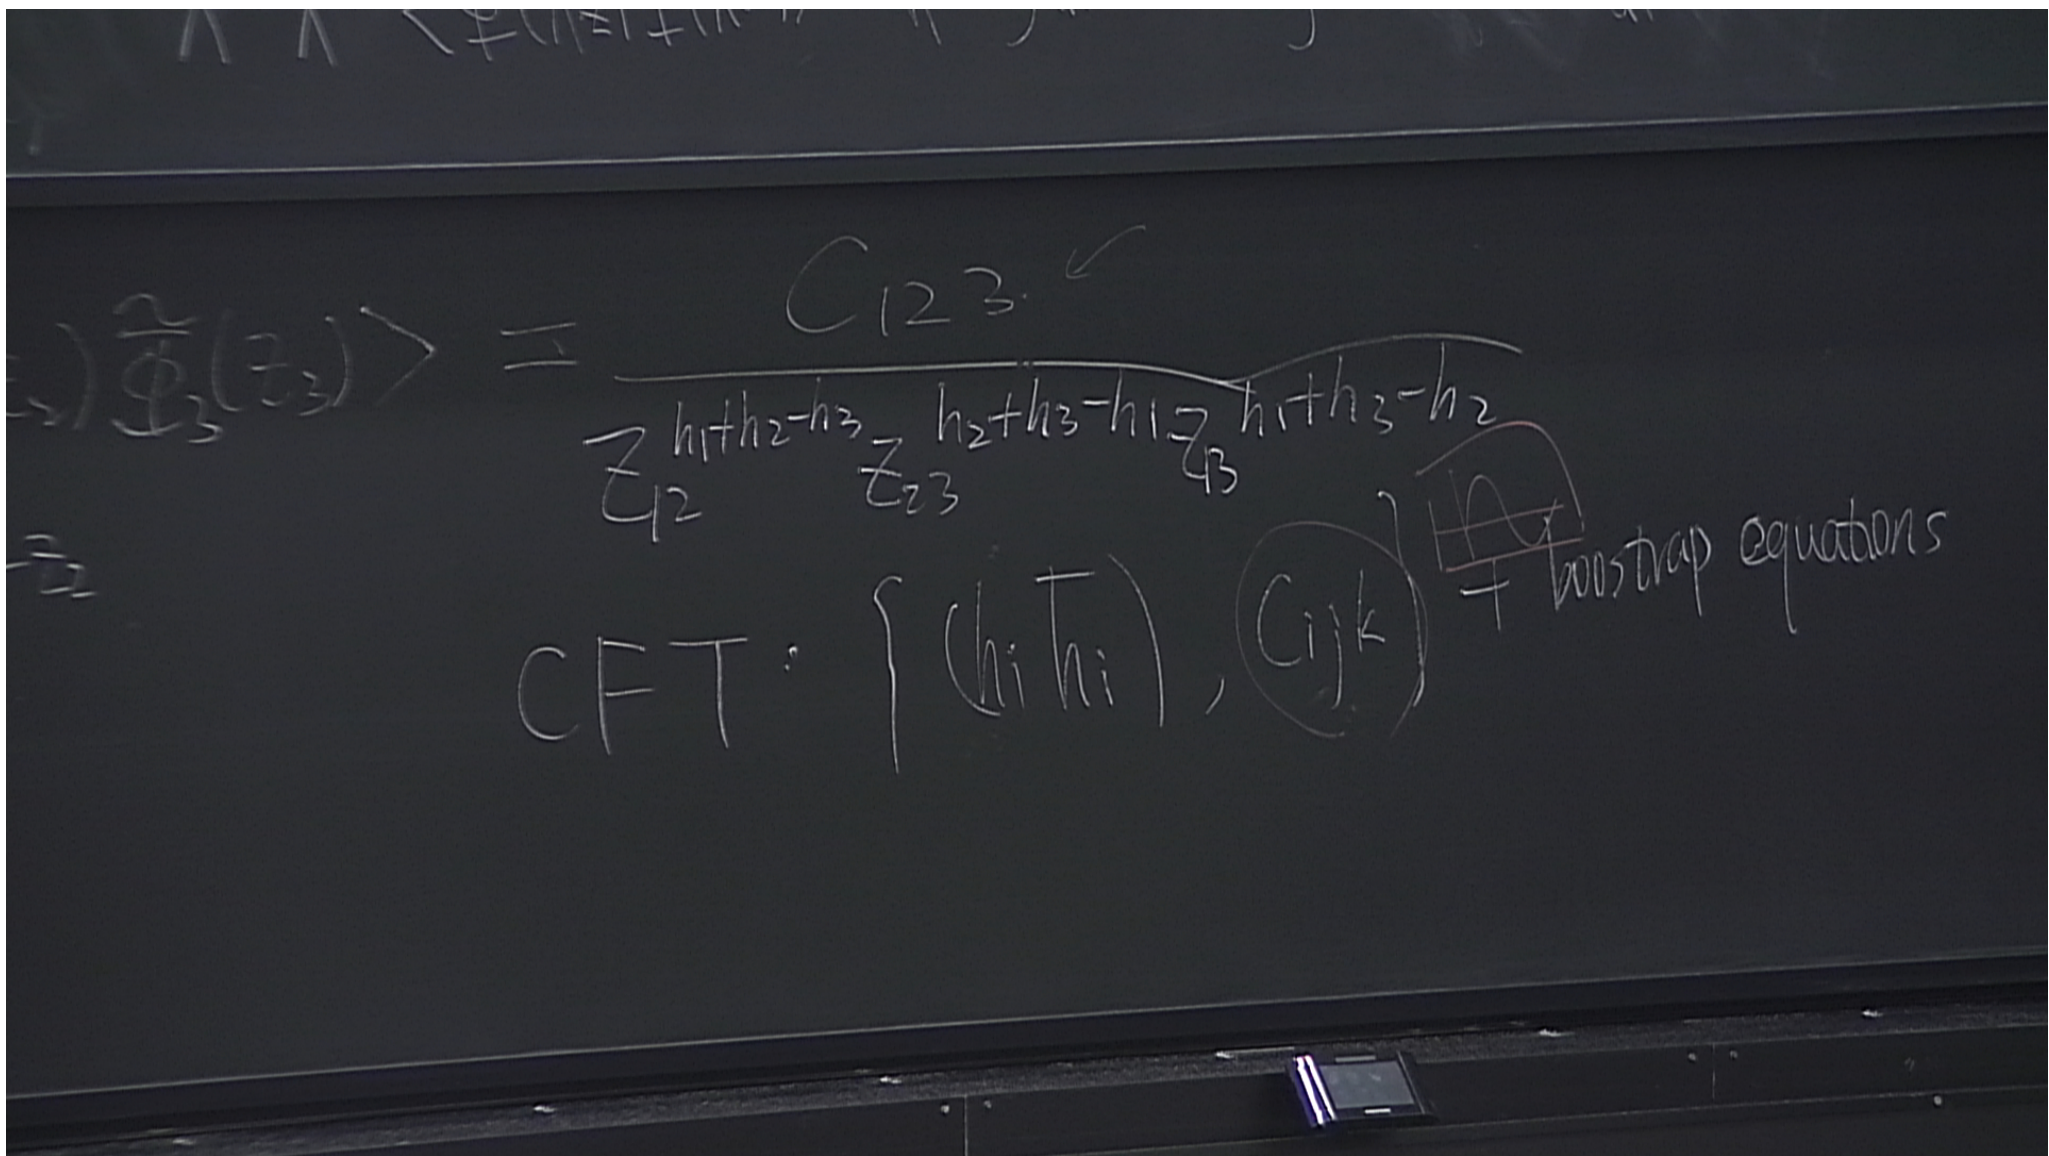 ₂) Φ̃₃(z₃)⟩ = C₁₂₃ / (z₁₂^{h₁+h₂-h₃} z₂₃^{h₂+h₃-h₁} z₁₃^{h₁+h₃-h₂})
-z₂
CFT: { (hᵢ h̄ᵢ), Cᵢⱼₖ } + boostrap equations